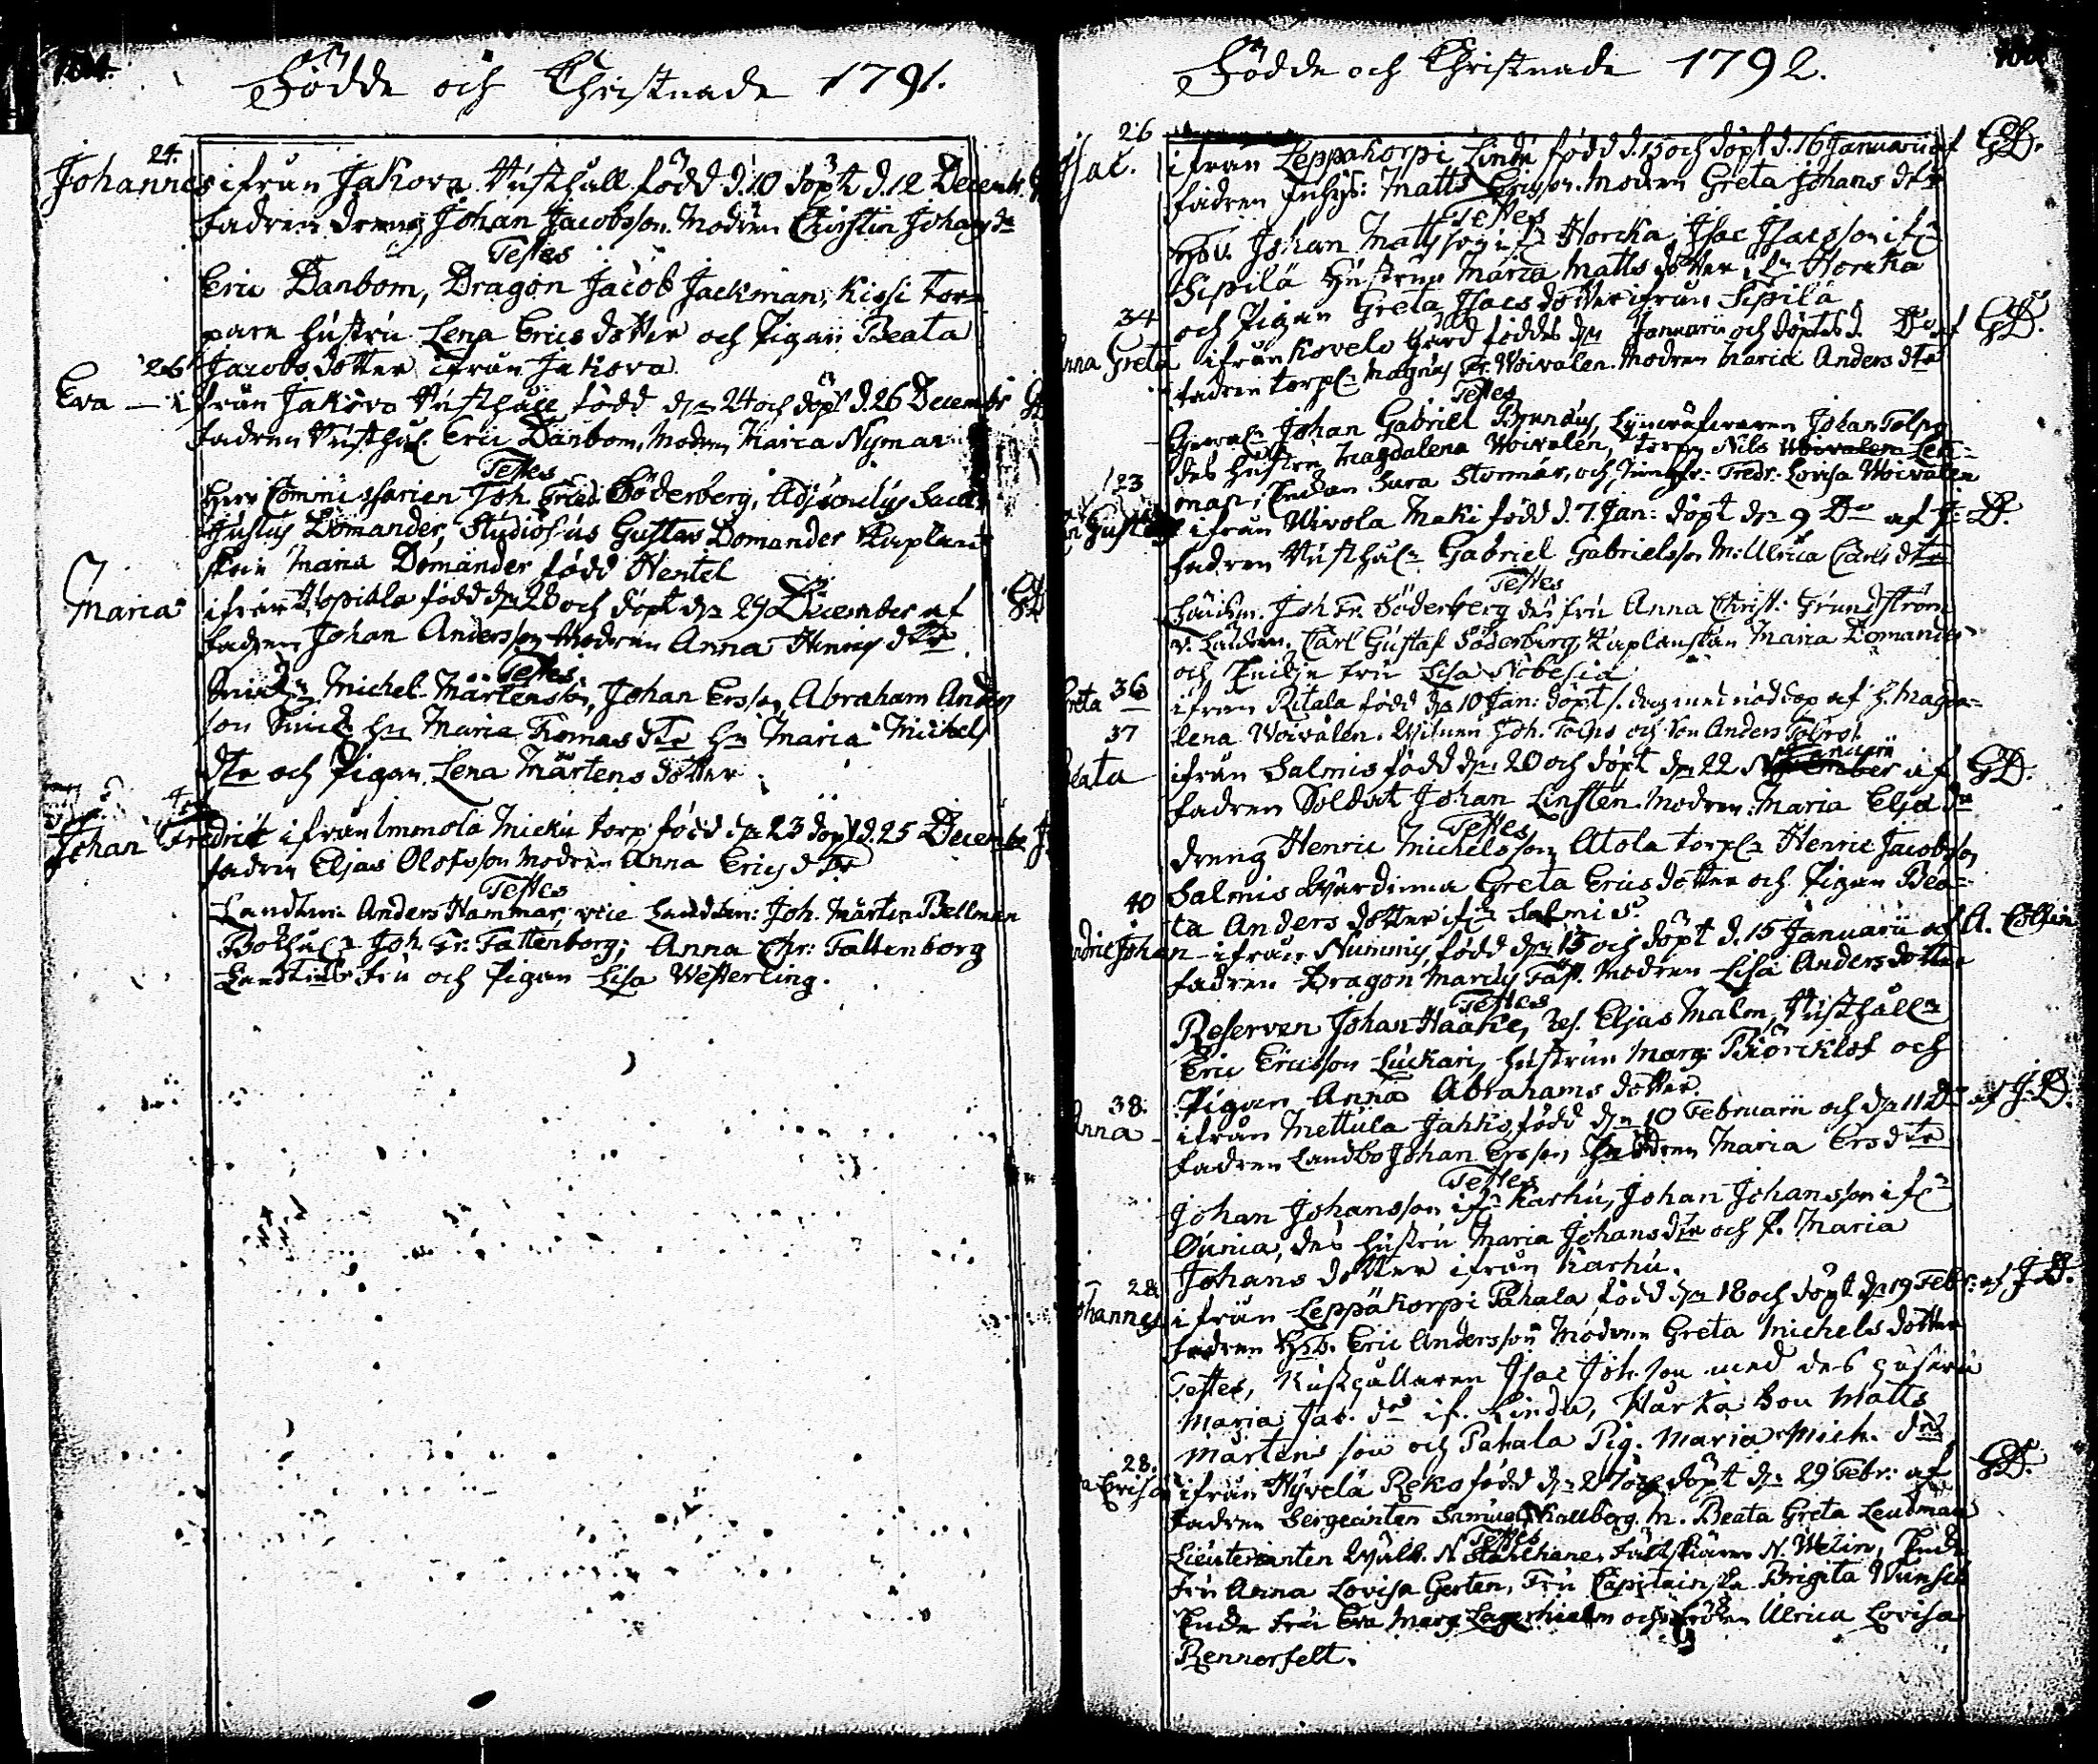 Födde och Christnade 1791.
24.
Johannes ifrån Jakova Rusthåll född d. 10 döpt d. 12 Decembr.
fadren dreng Johan Jacobsson Modren Christin Johans dr
Testes
Eric Danbom, Dragon Jacob Jackman, Kissi tor=
pare hustru Lena Erics dotter och Pigan Beata
Jacobs dotter ifrån Jakova
26
Eva — ifrån Jakova Rusthåll född dn 24 och döpt d. 26 Decembr
fadren Rusthål. Eric Danbom, Modren Maria Nyman
Testes
Herr Commissarien Joh. Fried. Söderberg, Adjunctus Sacr.
Justus Domander, Studiosus Gustav Domander Kaplans
skan Maria Domander född Hertel
Maria ifrån född dn 28 och döpt dn 29 December af
fadren Johan Andersson Modren Anna Henrics dtr
Testes
Michel Mårtensson, Johan Ersson, Abraham Anders
son hu Maria Thomas dtr hu Maria Michels
dtr och Pigan Lena Mårtens dotter
Johan Fredric ifrån Immola Micku torp född dn 23 döpt d. 25 Decembr
fadren Eljas Olofsson Modren Anna Erics dtr
Testes
Landtm: Anders Hammar, vice Landtm: Joh. Mårten Bellman
Bokhål. Joh. Fr. Fattenborg; Anna Chr: Fattenborg
fru och Pigan Lisa Westerling.
Födde och Christnade 1792.
26
Isac. ifrån Leppäkorpi Lindu född d. 15 och döpt d. 16 Januarii af GD.
fadren Inhys: Matts Ericson. Modren Greta Johans dtr
Testes
Hsb. Johan Mattsson ifr Horcka, Isac Isacsson ifr
Sipilä Hustrun Maria Matts dotter ifr Horcka
och Pigan Greta Isacs dotter ifrån Sipilä
34
Anna Greta ifrån Kovelo Gård föddes dn Januarii och döptes d. Do af GD.
fadren torp. Magnus Fr. Woivalen. Modren Maria Anders dtr
Testes
Johan Gabriel Brunous, Johan Tolpo
des hustru Magdalena Woivalen, torp. Nils Woivalen Let=
man, Sara Stormär, och Jungfr. Fredr. Lovisa Woivalen
23
Gustaf ifrån Uivola Maki född d. 7. Jan: döpt dn 9 Do af J. D.
fadren Rusthål. Gabriel Gabrielsson M: Ulrica Carls dtr
Testes
Joh. Fr. Söderberg des fru Anna Christ: Grundström
v. Landtm. Carl Gustaf Söderberg, Kaplanskan Maria Domander
och Enkje fru Lisa
36
Greta ifrån Ritala född dn 10 Jan: döpt s. dag med nöddop af h. Magda=
lena Woivalen. Witnen Joh. Tolpo och Son Anders Tolpo.
37
Beata ifrån Salmis född dn 20 och döpt dn 22 Januarii af GD.
fadren Soldat Johan Linsten. Modren. Maria Eljæ dr
Testes
Dreng Henric Michelsson, Alola torp. Henric Jacobsson
Salmis Wärdinna Greta Erics dotter och Pigan Bea=
ta Anders dotter ifr Salmis.
40
Johan — ifrån Nummis, född dn 15 och döpt d. 15 Januarii af A. Collin
fadren Dragon Marcus Fast. Modren Lisa Anders dotter
Testes
Reserven Johan Haake, res. Eljas Malm, Rusthåll.
Eric Ericsson Luckari, hustrun Marg: Björcklöf och
Pigan Anna Abrahams dotter
38.
Anna — ifrån Mettula Jahko född dn 10 Februarii och dn 11 Do af J. D.
fadren Landbo Johan Ersson, Modren Maria Ers dtr
Testes
Johan Johansson ifr Karhu, Johan Johansson ifr
Ounia, des hustru Maria Johans dtr och P. Maria
Johans dotter ifrån Karhu.
28
Johannes ifrån Leppäkorpi Pahala född dn 18 och döpt dn 19 Febr: af J. D.
fadren Hsb. Eric Andersson Modren Greta Michels dotter
Testes, Rusthållaren Isac Joh. son med des hustru
Maria Jac. dr if. Lindu, Harka Son Matts
Mårtens son och Pahala Pig. Maria Mich. dr
28.
ifrån Hyvelä Reko född dn 27 och döpt dn 29 Febr: af GD.
fadren Sergeanten Samuel Kallberg. M. Beata Greta Leutman
Testes
Lieutenanten Wälb. N Stahlhane, fältskären N. Welin,
fru Anna Lovisa Gerten, Fru Capitainska Brigita Wunsch
fru Eva Marg Lagerhielm och fröken Ulrica Lovisa
Rennerfelt.